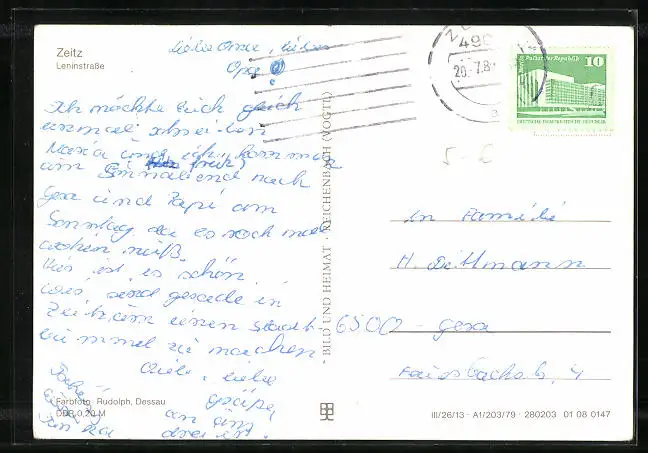 Zeitz
Leninstraße
Liebe Oma, lieber
Opa
Ich möchte euch gleich
einmal schreiben
und ich kommen
am nach
Gera und Papi am
Sonntag da er noch mal
muß.
Hier ist es schön
wir sind gerade in
Zeitz um einen Stadt-
bummel zu machen
Viele liebe
Grüße
Farbfoto: Rudolph, Dessau
DDR 0,20 M
BILD UND HEIMAT · REICHENBACH (VOGTL)
490
20.-7.8
Palast der Republik
10
DEUTSCHE DEMOKRATISCHE REPUBLIK
5-6
An Familie
H. Dittmann
6500 - Gera
4
III/26/13 · A1/203/79 · 280203 01 08 0147